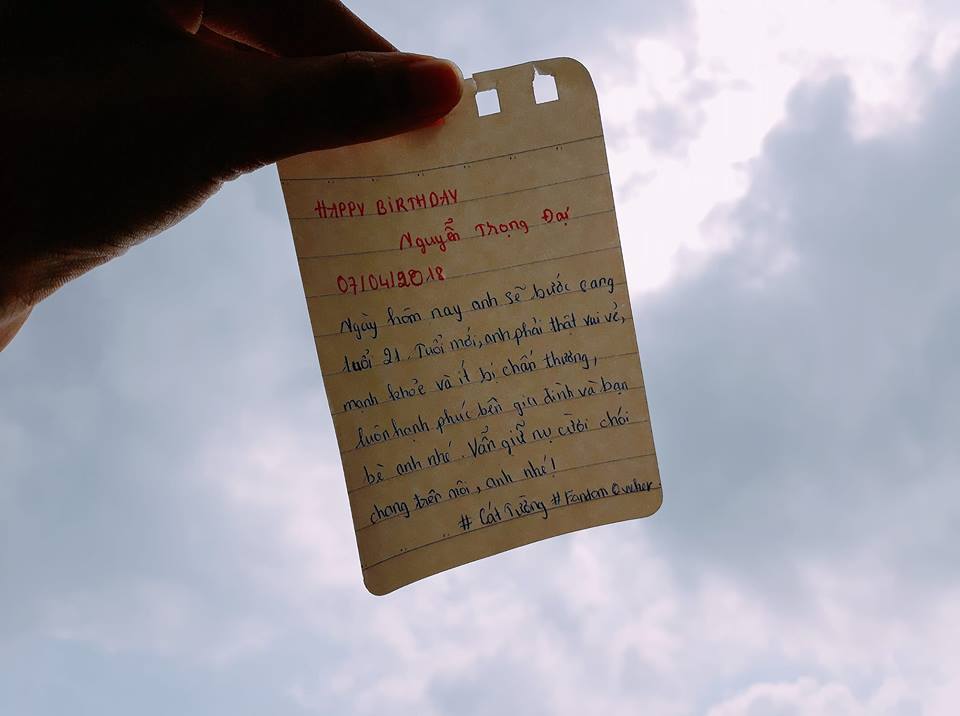 HAPPY BIRTHDAY
Nguyễn Trọng Đại
07/04/2018
Ngày hôm nay anh sẽ bước sang
tuổi 21. Tuổi mới, anh phải thật vui vẻ,
mạnh khỏe và ít bị chấn thương,
luôn hạnh phúc bên gia đình và bạn
bè anh nhé. Vẫn giữ nụ cười chói
chang trên môi, anh nhé!
# Cát Tường # Fandom